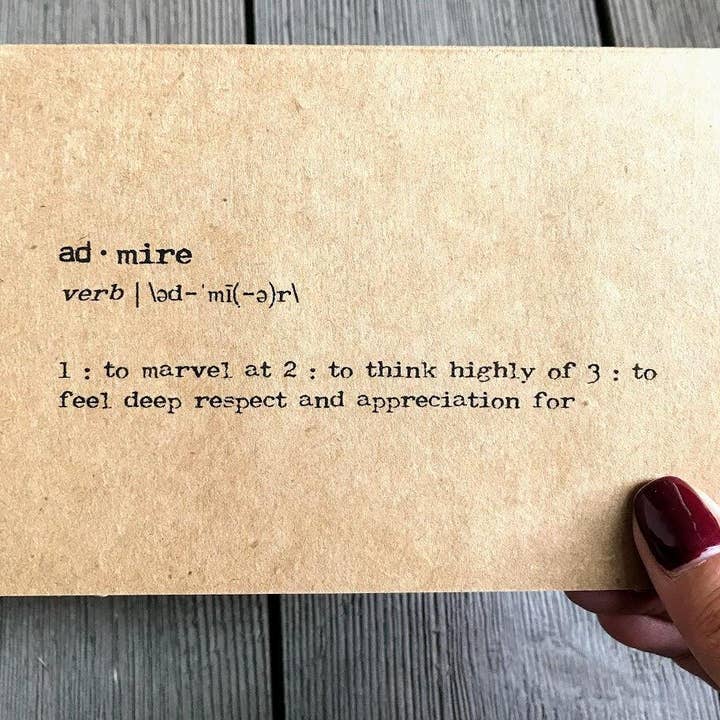 ad·mire
verb | \əd-ˈmī(-ə)r\
1 : to marvel at 2 : to think highly of 3 : to
feel deep respect and appreciation for